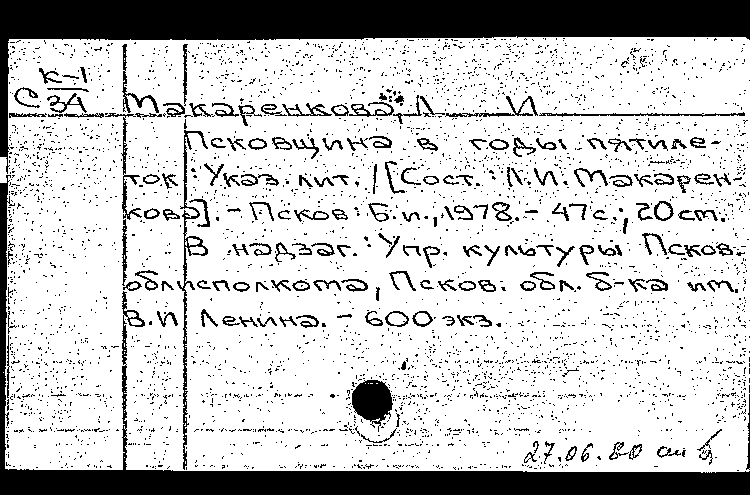 К-1
С 34 Макаренкова, Л И
Псковщина в годы пятиле-
ток : Указ. лит. / [Сост. : Л.И. Макарен-
кова]. - Псков : Б.и., 1978. - 47с.; 20 см.
В надзаг. : Упр. культуры Псков.
облисполкома, Псков. обл. б-ка им.
В.И Ленина. - 600 экз.
27.06.80